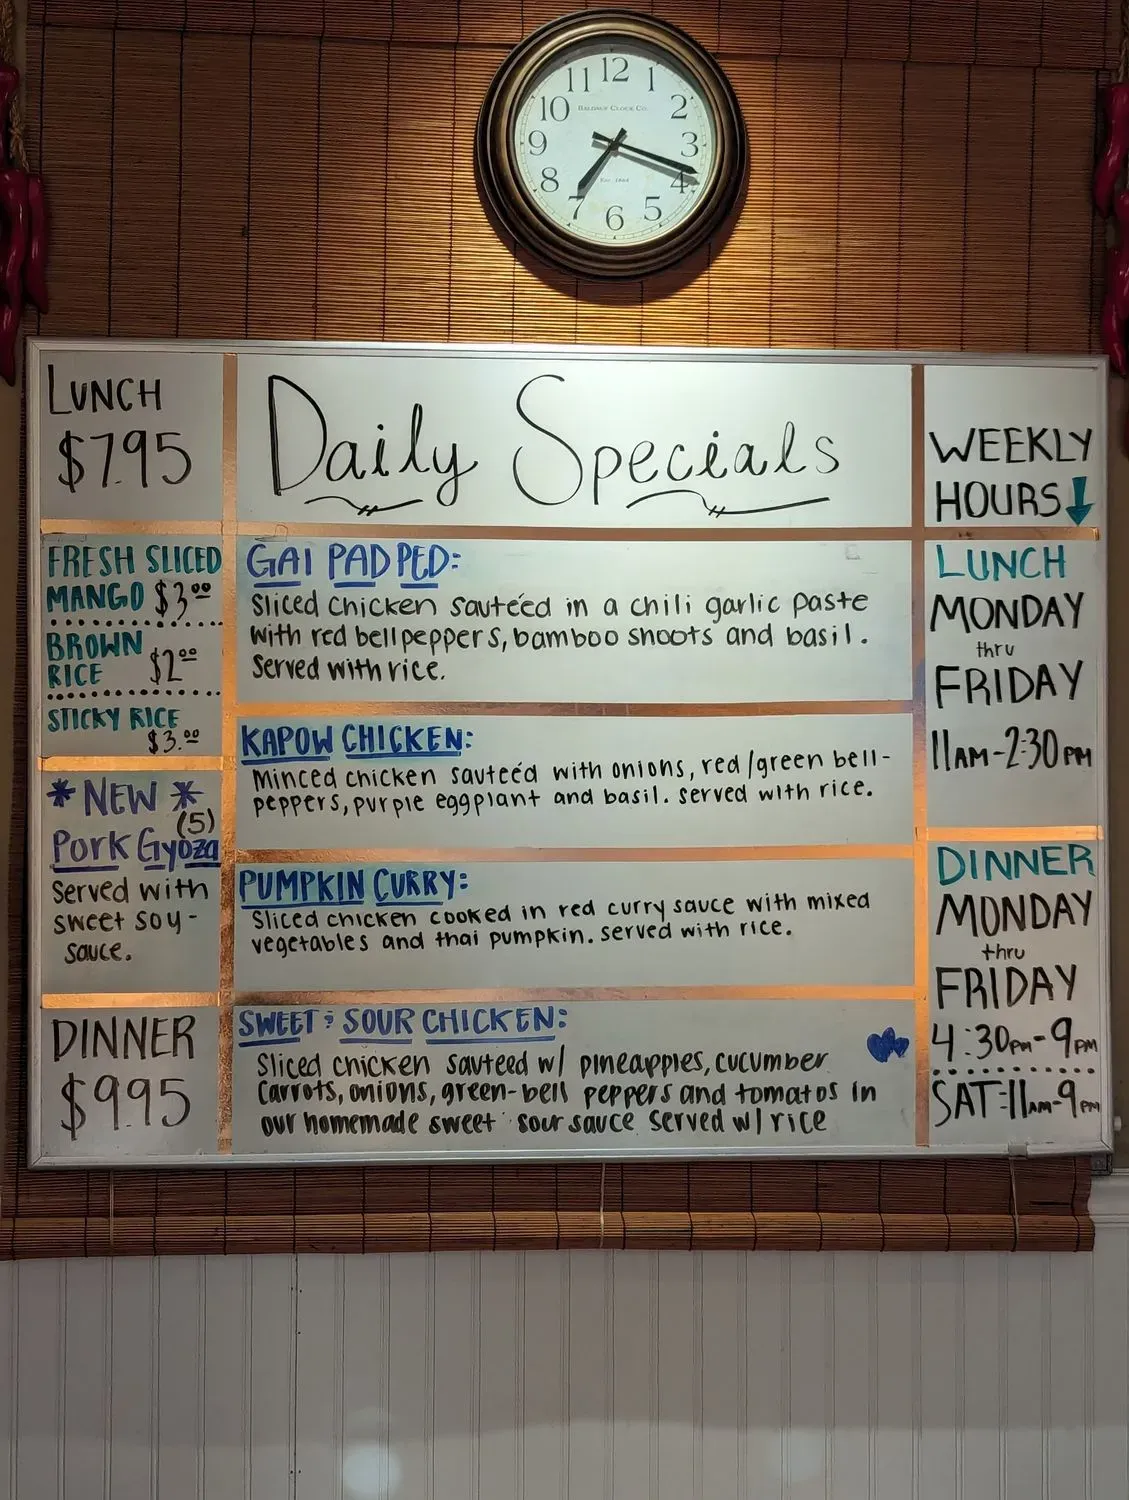 11 12 1
10 2
9 3
8 4
7 6 5
BALDWIN CLOCK CO.
Est. 1864
LUNCH
$7.95
Daily Specials
WEEKLY
HOURS
FRESH SLICED
MANGO $3.00
BROWN
RICE $2.00
STICKY RICE
$3.00
* NEW *
(5)
Pork Gyoza
Served with
sweet soy-
sauce.
DINNER
$9.95
GAI PAD PED:
Sliced chicken sautéed in a chili garlic paste
with red bellpeppers, bamboo shoots and basil.
Served with rice.
KAPOW CHICKEN:
Minced chicken sauteéd with onions, red/green bell-
peppers, purple eggplant and basil. served with rice.
PUMPKIN CURRY:
Sliced chicken cooked in red curry sauce with mixed
vegetables and thai pumpkin. served with rice.
SWEET & SOUR CHICKEN:
Sliced chicken sauteed w/ pineapples, cucumber
carrots, onions, green-bell peppers and tomatos in
our homemade sweet sour sauce served w/ rice
LUNCH
MONDAY
thru
FRIDAY
11AM-2:30PM
DINNER
MONDAY
thru
FRIDAY
4:30PM-9PM
SAT:11AM-9PM